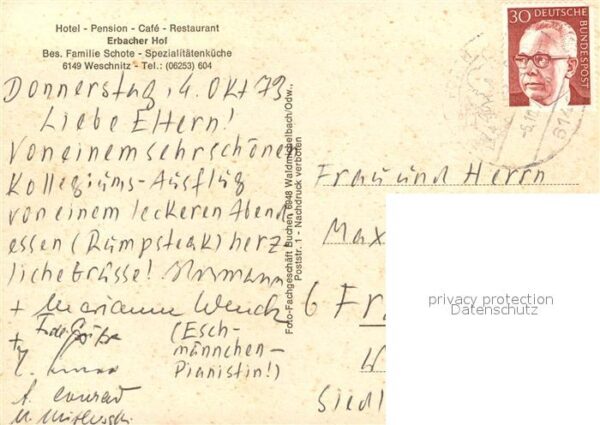 Hotel - Pension - Café - Restaurant
Erbacher Hof
Bes. Familie Schote - Spezialitätenküche
6149 Weschnitz - Tel.: (06253) 604
Donnerstag, 4. Okt 73
Liebe Eltern!
Von einem sehr schönen
Kollegiums-Ausflug
von einem leckeren Abend
essen (Rumpsteak) herz
liche Grüsse! Normann
+ Marianne Wendt
(Esch-
männchen-
Pianistin!)
A. Conrad
Foto-Fachgeschäft Buchen, 6948 Waldmichelbach/Odw.,
Poststr. 1 - Nachdruck verboten
30 DEUTSCHE
BUNDESPOST
-5.10.
614
Frau und Herrn
Max
6 Fr
W
Siedl
privacy protection
Datenschutz